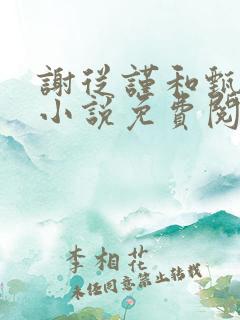 謝從謹和甄
小說免費閱
李相花
未经同意禁止转载